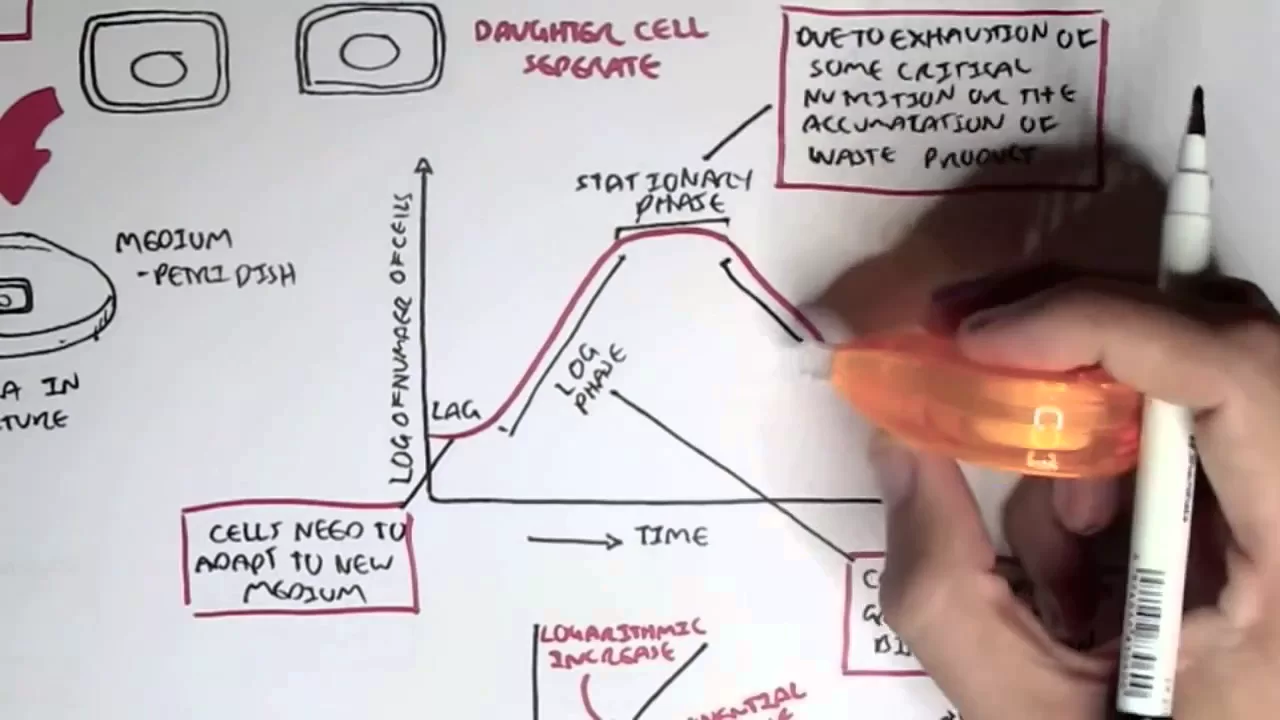 DAUGHTER CELL
SEPERATE
DUE TO EXHAUSTION OF
SOME CRITICAL
NUTRITION OR THE
ACCUMATATION OF
WASTE PRODUCT
STATIONARY
PHASE
MEDIUM
-PETRI DISH
LOG OF NUMBER OF CELLS
LAG
LOG
PHASE
A IN
TURE
CELLS NEED TO
ADAPT TO NEW
MEDIUM
TIME
LOGARITHMIC
INCREASE
NENTIAL